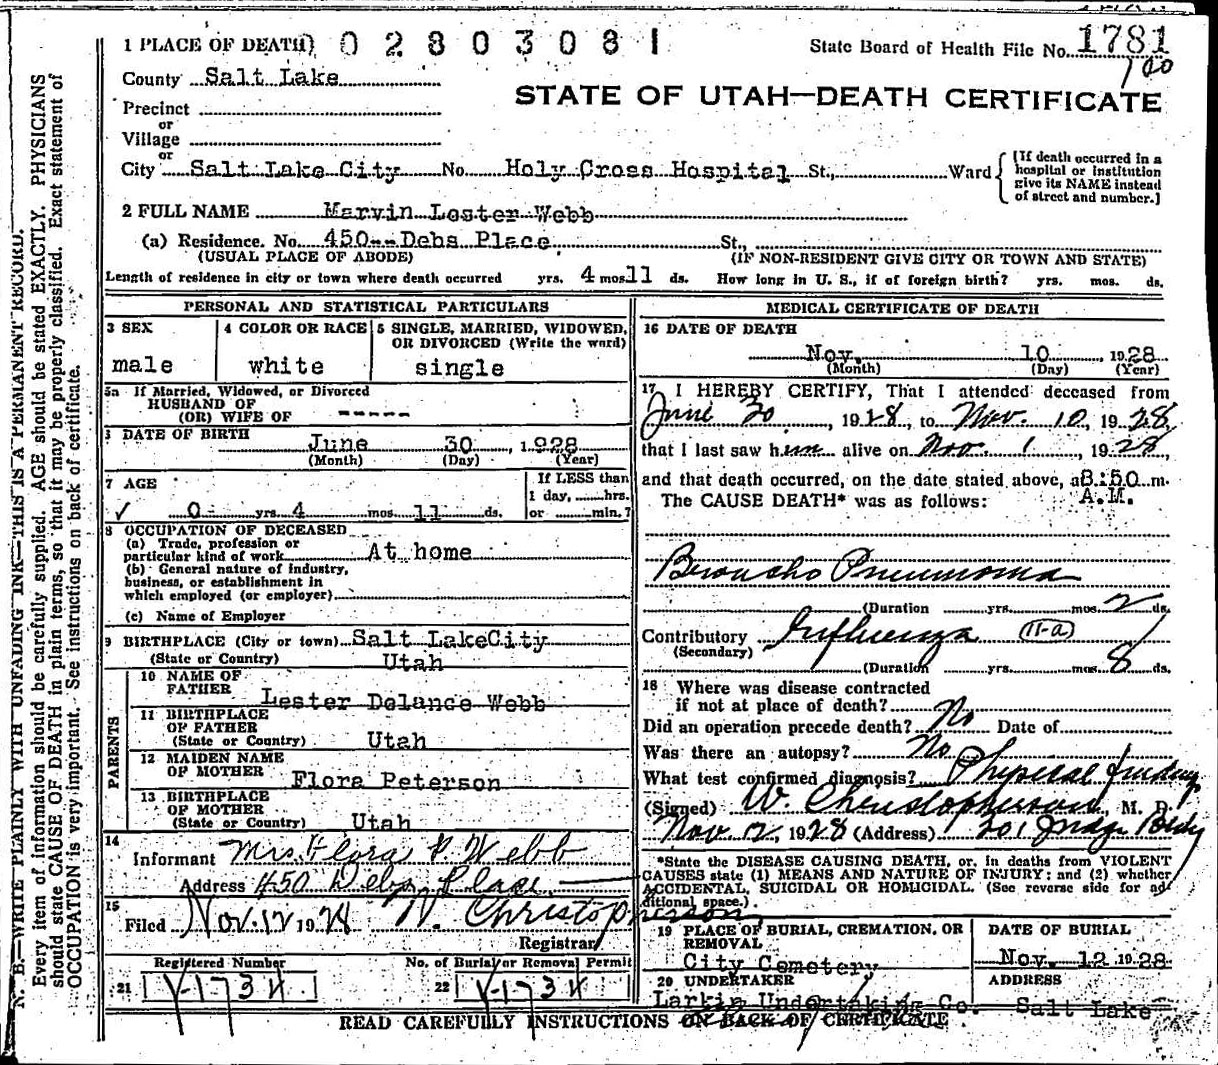 1 PLACE OF DEATH 02803081 State Board of Health File No. 1781
100
County Salt Lake
STATE OF UTAH—DEATH CERTIFICATE
Precinct
or
Village
or
City Salt Lake City No. Holy Cross Hospital St., Ward
[If death occurred in a
hospital or institution
give its NAME instead
of street and number.]
2 FULL NAME Marvin Lester Webb
(a) Residence. No. 450--Debs Place St.,
(USUAL PLACE OF ABODE) (IF NON-RESIDENT GIVE CITY OR TOWN AND STATE)
Length of residence in city or town where death occurred yrs. 4 mos. 11 ds. How long in U. S., if of foreign birth? yrs. mos. ds.
PERSONAL AND STATISTICAL PARTICULARS
3 SEX 4 COLOR OR RACE 5 SINGLE, MARRIED, WIDOWED,
OR DIVORCED (Write the word)
male white single
5a If Married, Widowed, or Divorced
HUSBAND OF
(OR) WIFE OF -----
DATE OF BIRTH
June 30 1928
(Month) (Day) (Year)
7 AGE If LESS than
1 day, hrs.
0 yrs. 4 mos. 11 ds. or min.?
8 OCCUPATION OF DECEASED
(a) Trade, profession or
particular kind of work At home
(b) General nature of industry,
business, or establishment in
which employed (or employer)
(c) Name of Employer
9 BIRTHPLACE (City or town) Salt LakeCity
(State or Country) Utah
PARENTS
10 NAME OF
FATHER Lester Delance Webb
11 BIRTHPLACE
OF FATHER
(State or Country) Utah
12 MAIDEN NAME
OF MOTHER Flora Peterson
13 BIRTHPLACE
OF MOTHER
(State or Country) Utah
14
Informant Mrs. Flora P. Webb
Address 450 Debs Place
15
Filed Nov. 12 1928 W. Christopherson
Registrar
Registered Number No. of Burial or Removal Permit
21 V-1734 22 V-1734
MEDICAL CERTIFICATE OF DEATH
16 DATE OF DEATH
Nov. 10 1928
(Month) (Day) (Year)
17 I HEREBY CERTIFY, That I attended deceased from
June 30, 1928, to Nov. 10, 1928,
that I last saw him alive on Nov. 1, 1928,
and that death occurred, on the date stated above, a 8:50 m.
The CAUSE DEATH* was as follows: A.M.
Broncho Pneumonia
(Duration yrs. mos. 2 ds.
Contributory Influenza 11-a
(Secondary)
(Duration yrs. mos. 8 ds.
18 Where was disease contracted
if not at place of death?
Did an operation precede death? No Date of
Was there an autopsy? No
What test confirmed diagnosis? Physical findings
(Signed) W. Christopherson, M. D.
Nov 12, 1928 (Address) 201 Judge Bldg
*State the DISEASE CAUSING DEATH, or, in deaths from VIOLENT
CAUSES state (1) MEANS AND NATURE OF INJURY: and (2) whether
ACCIDENTAL, SUICIDAL OR HOMICIDAL. (See reverse side for ad-
ditional space.)
19 PLACE OF BURIAL, CREMATION, OR
REMOVAL
City Cemetery
DATE OF BURIAL
Nov. 12 1928
20 UNDERTAKER ADDRESS
Larkin Undertaking Co. Salt Lake
READ CAREFULLY INSTRUCTIONS ON BACK OF CERTIFICATE
N. B.—WRITE PLAINLY WITH UNFADING INK—THIS IS A PERMANENT RECORD.
Every item of information should be carefully supplied. AGE should be stated EXACTLY. PHYSICIANS
should state CAUSE OF DEATH in plain terms, so that it may be properly classified. Exact statement of
OCCUPATION is very important. See instructions on back of certificate.